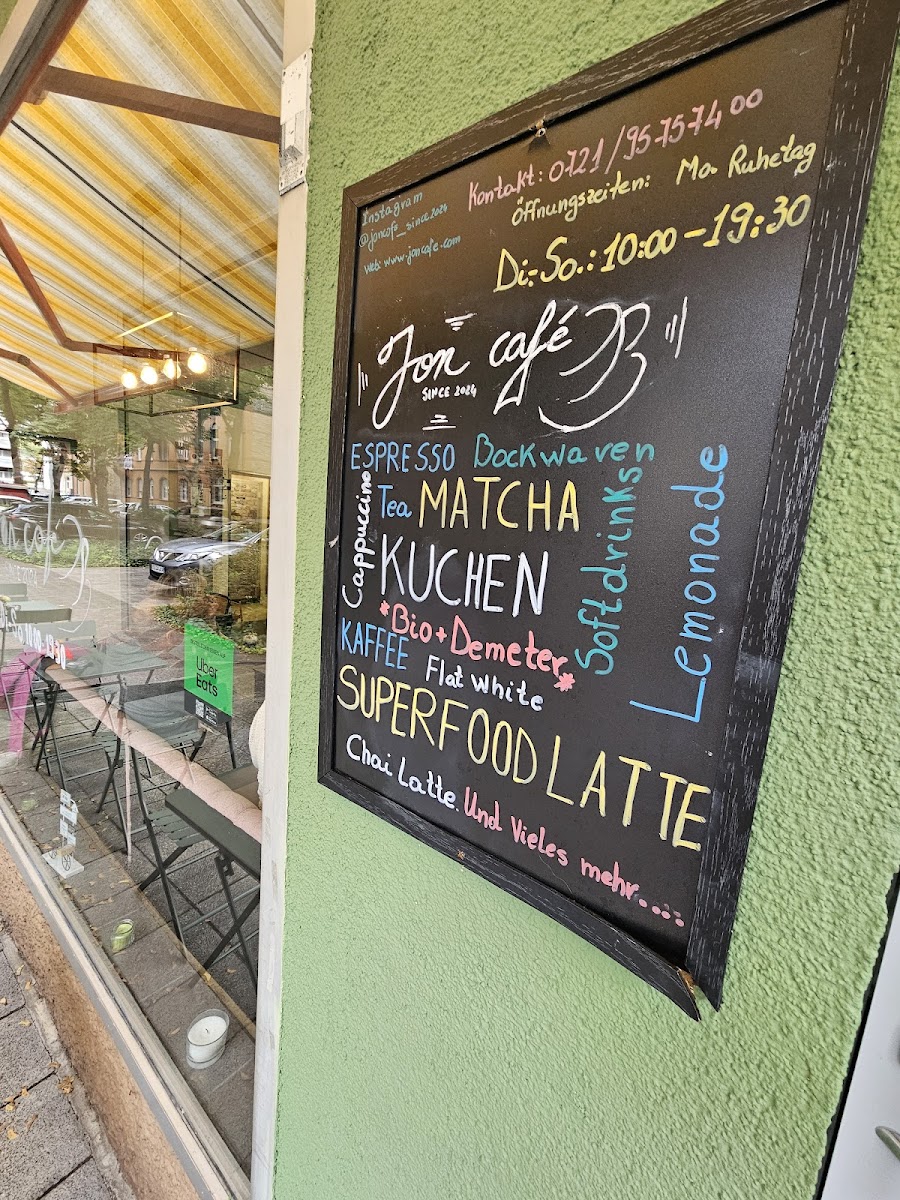 Instagram
@joncafe_since2024
web: www.joncafe.com
Kontakt: 0721/95757400
Öffnungszeiten: Mo. Ruhetag
Di.-So.: 10:00-19:30
Jon café
SINCE 2024
ESPRESSO
Backwaren
Cappuccino
Tea
MATCHA
KUCHEN
Softdrinks
Lemonade
*Bio+Demeter*
KAFFEE
Flat white
SUPERFOOD LATTE
Chai Latte.
Und vieles mehr....
Uber
Eats